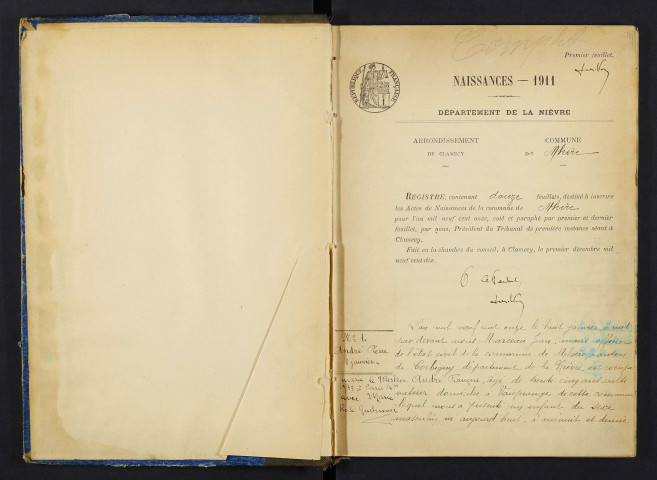 Complet
Premier feuillet.
RÉPUBLIQUE FRANÇAISE
NAISSANCES — 1911
DÉPARTEMENT DE LA NIÈVRE
ARRONDISSEMENT
DE CLAMECY
COMMUNE
DE Mhère
REGISTRE, contenant douze feuillets, destiné à inscrire
les Actes de Naissances de la commune de Mhère
pour l'an mil neuf cent onze, coté et paraphé par premier et dernier
feuillet, par nous, Président du Tribunal de première instance séant à
Clamecy.
Fait en la chambre du conseil, à Clamecy, le premier décembre mil
neuf cent dix.
N° 1.
André Pierre
8 janvier
marié à
avec Marie
L'an mil neuf cent onze le huit janvier à midi
par devant nous Marceau Jean, maire officier
de l'état civil de la commune de Mhère canton
de Corbigny, département de la Nièvre, est comparu
André François, âgé de trente cinq ans, culti
vateur domicilié à Vauprange dicette commune
lequel nous a présenté un enfant du sexe
masculin, né aujourd'huit, à minuit et demie